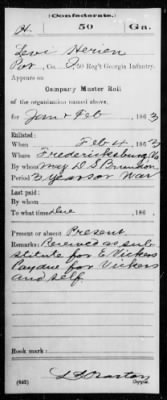 (Confederate.)
H. 50 Ga.
Levi Herien
Pvt, Co. 50 Reg't Georgia Infantry.
Appears on
Company Muster Roll
of the organization named above,
for Jan & Feb, 1863
Enlisted:
When Feb 4, 1863
Where Fredericksburg Va
By whom Maj D. S. Brandon
Period 3 Years or War
Last paid:
By whom
To what time due, 186 .
Present or absent Present
Remarks: Received as sub-
stitute for E. Vickers
Pay due for Vickers
and self.
Book mark:
(642) Copyist.